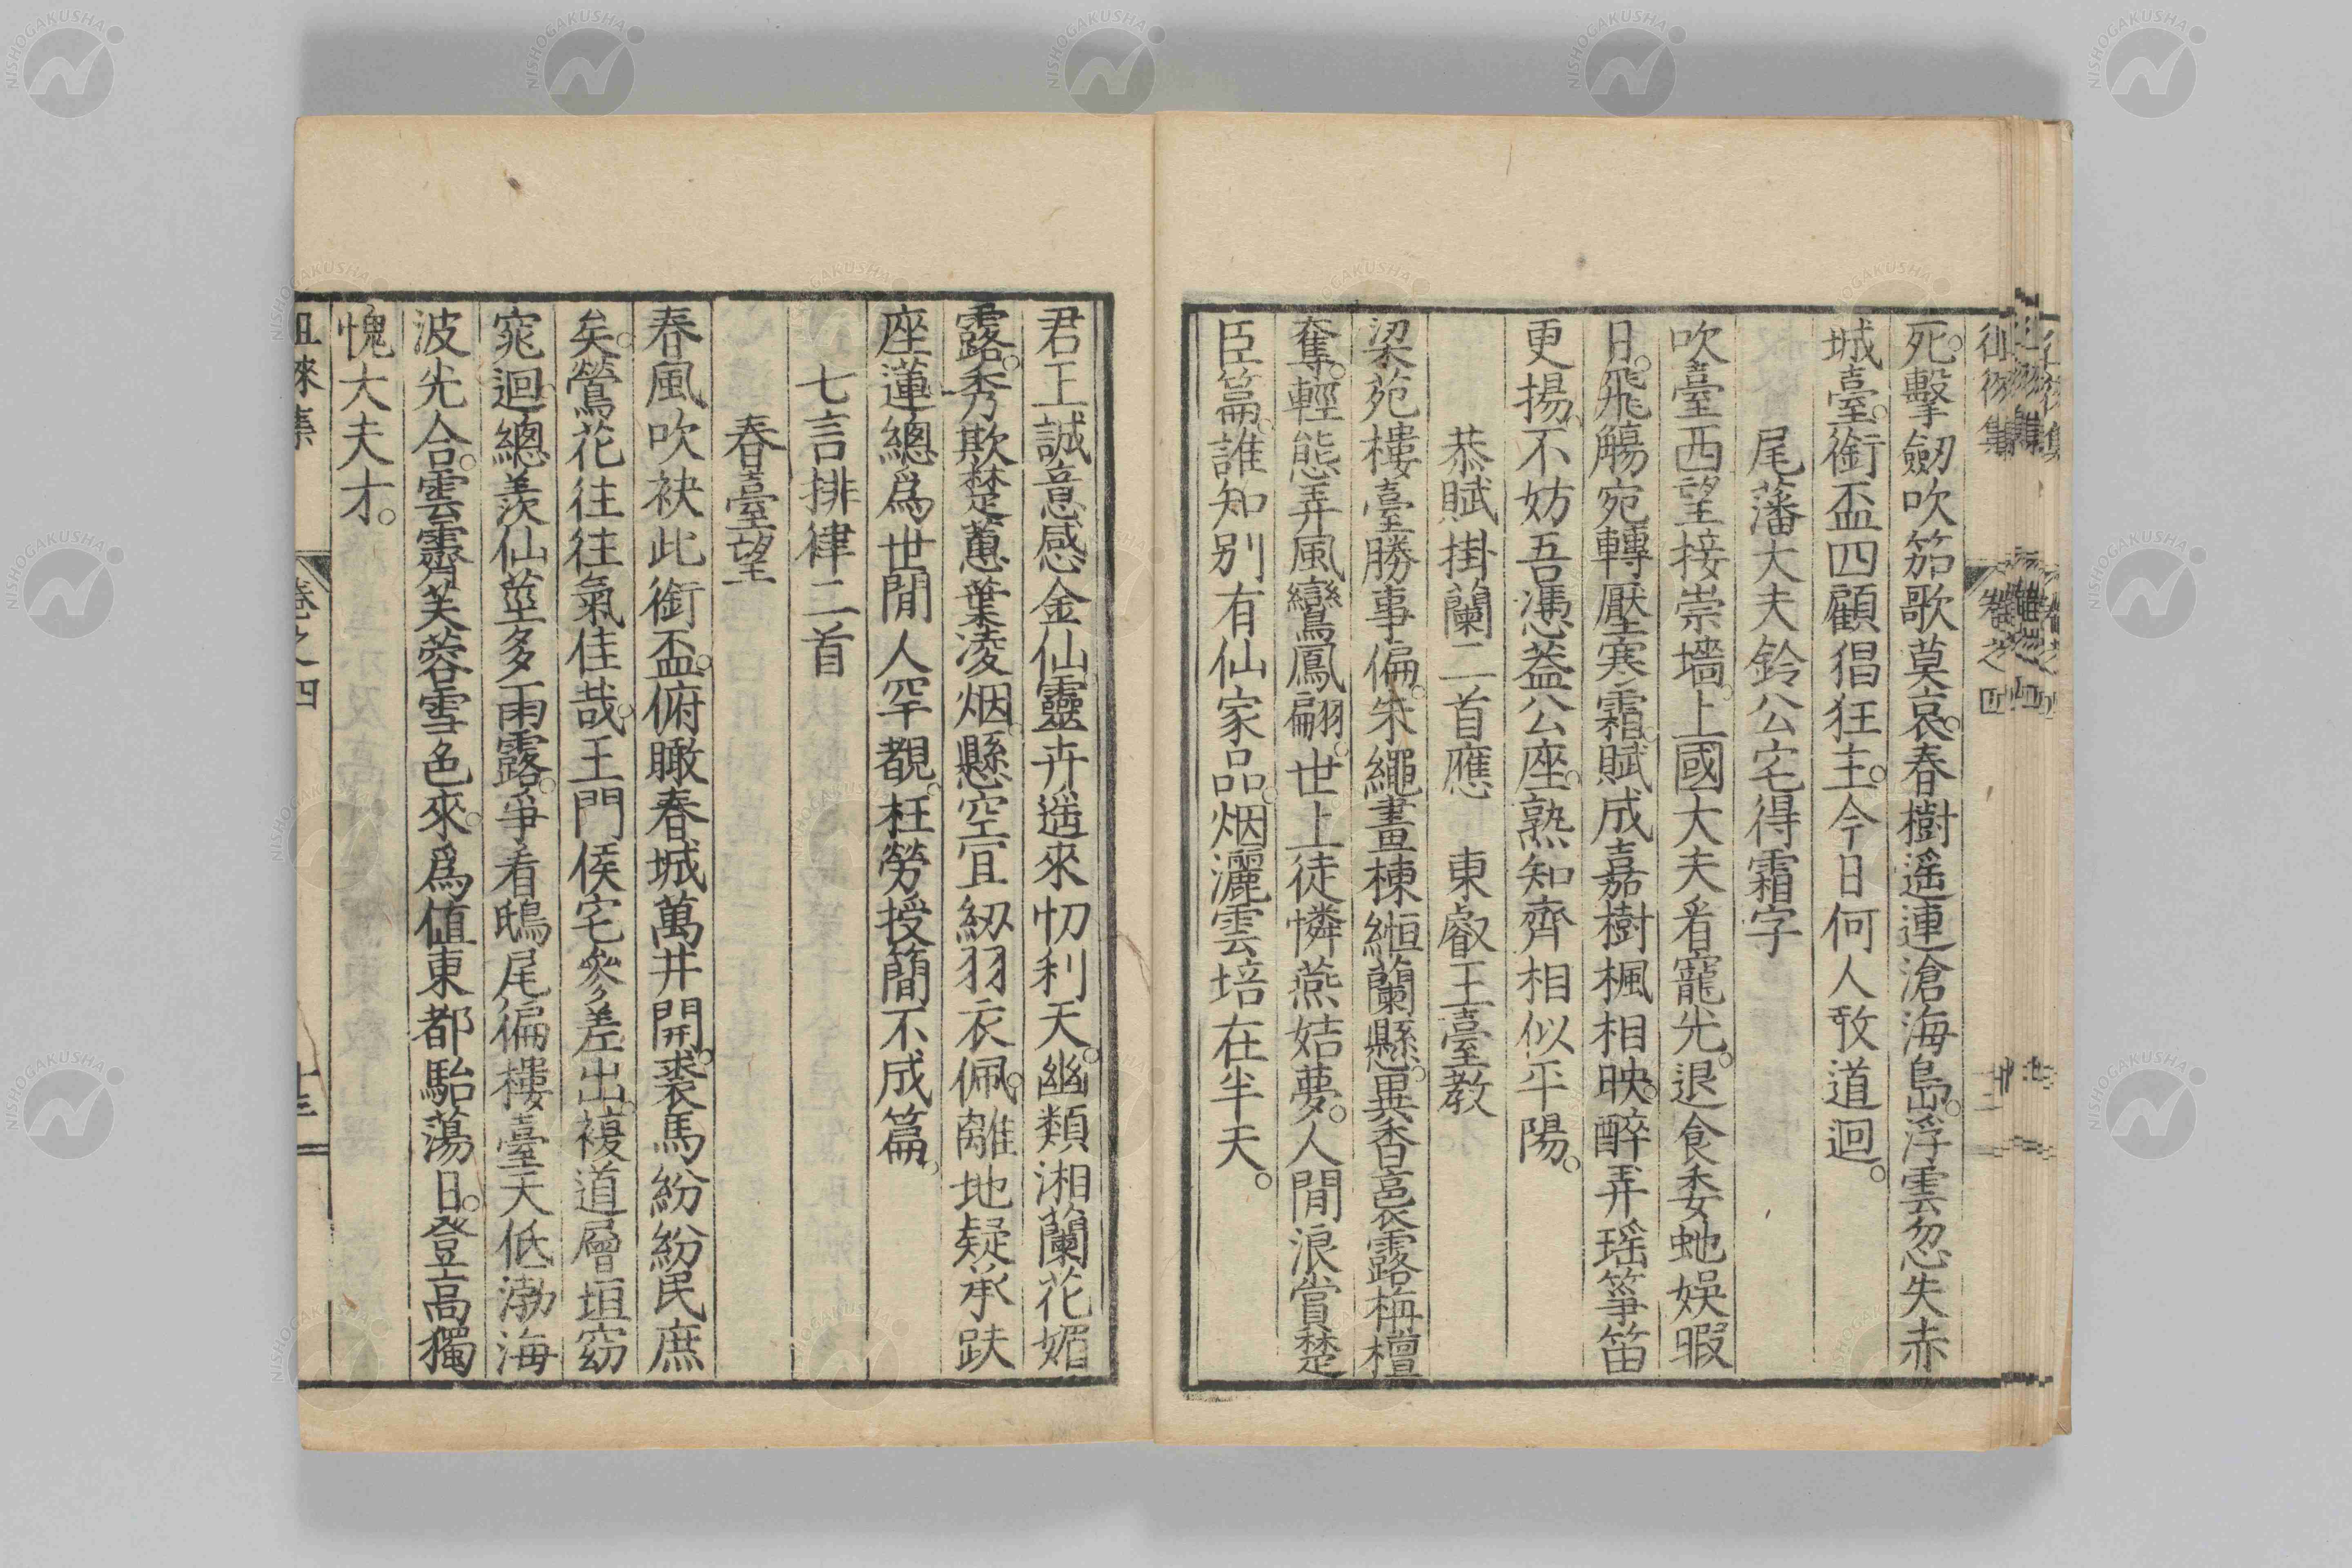 死。擊劒吹笳歌莫哀。春樹遥連滄海島。浮雲忽失赤
城臺。銜盃四顧猖狂士。今日何人敢道迴。
尾藩大夫鈴公宅得霜字
吹臺西望接崇墻。上國大夫看寵光。退食委虵娛暇
日。飛觴宛轉壓寒霜。賦成嘉樹楓相映。醉弄瑶箏笛
更揚。不妨吾憑葢公座。熟知齊相似平陽。
恭賦掛蘭二首應 東叡王臺教
梁苑樓臺勝事偏。朱繩畫棟緪蘭懸。異香裛露栴檀
奪。輕態弄風鸞鳳翩。世上徒憐燕姞夢。人閒浪賞楚
臣篇。誰知別有仙家品。烟灑雲培在半天。
君王誠意感金仙靈卉遥來忉利天。幽類湘蘭花媚
露。秀欺楚蕙葉凌烟。懸空宜紉羽衣佩。離地疑承趺
座蓮總爲世閒人罕覩。枉勞授簡不成篇。
七言排律二首
春臺望
春風吹袂此銜盃。俯瞰春城萬井開。裘馬紛紛民庶
矣。鶯花往往氣佳哉。王門侯宅參差出。複道層垣窈
窕迴。總羨仙莖多雨露。爭看鴟尾徧樓臺天低渤海
波光合。雲霽芙蓉雪色來。爲値東都駘蕩日。登高獨
愧大夫才。
徂徠集
卷之四
十三